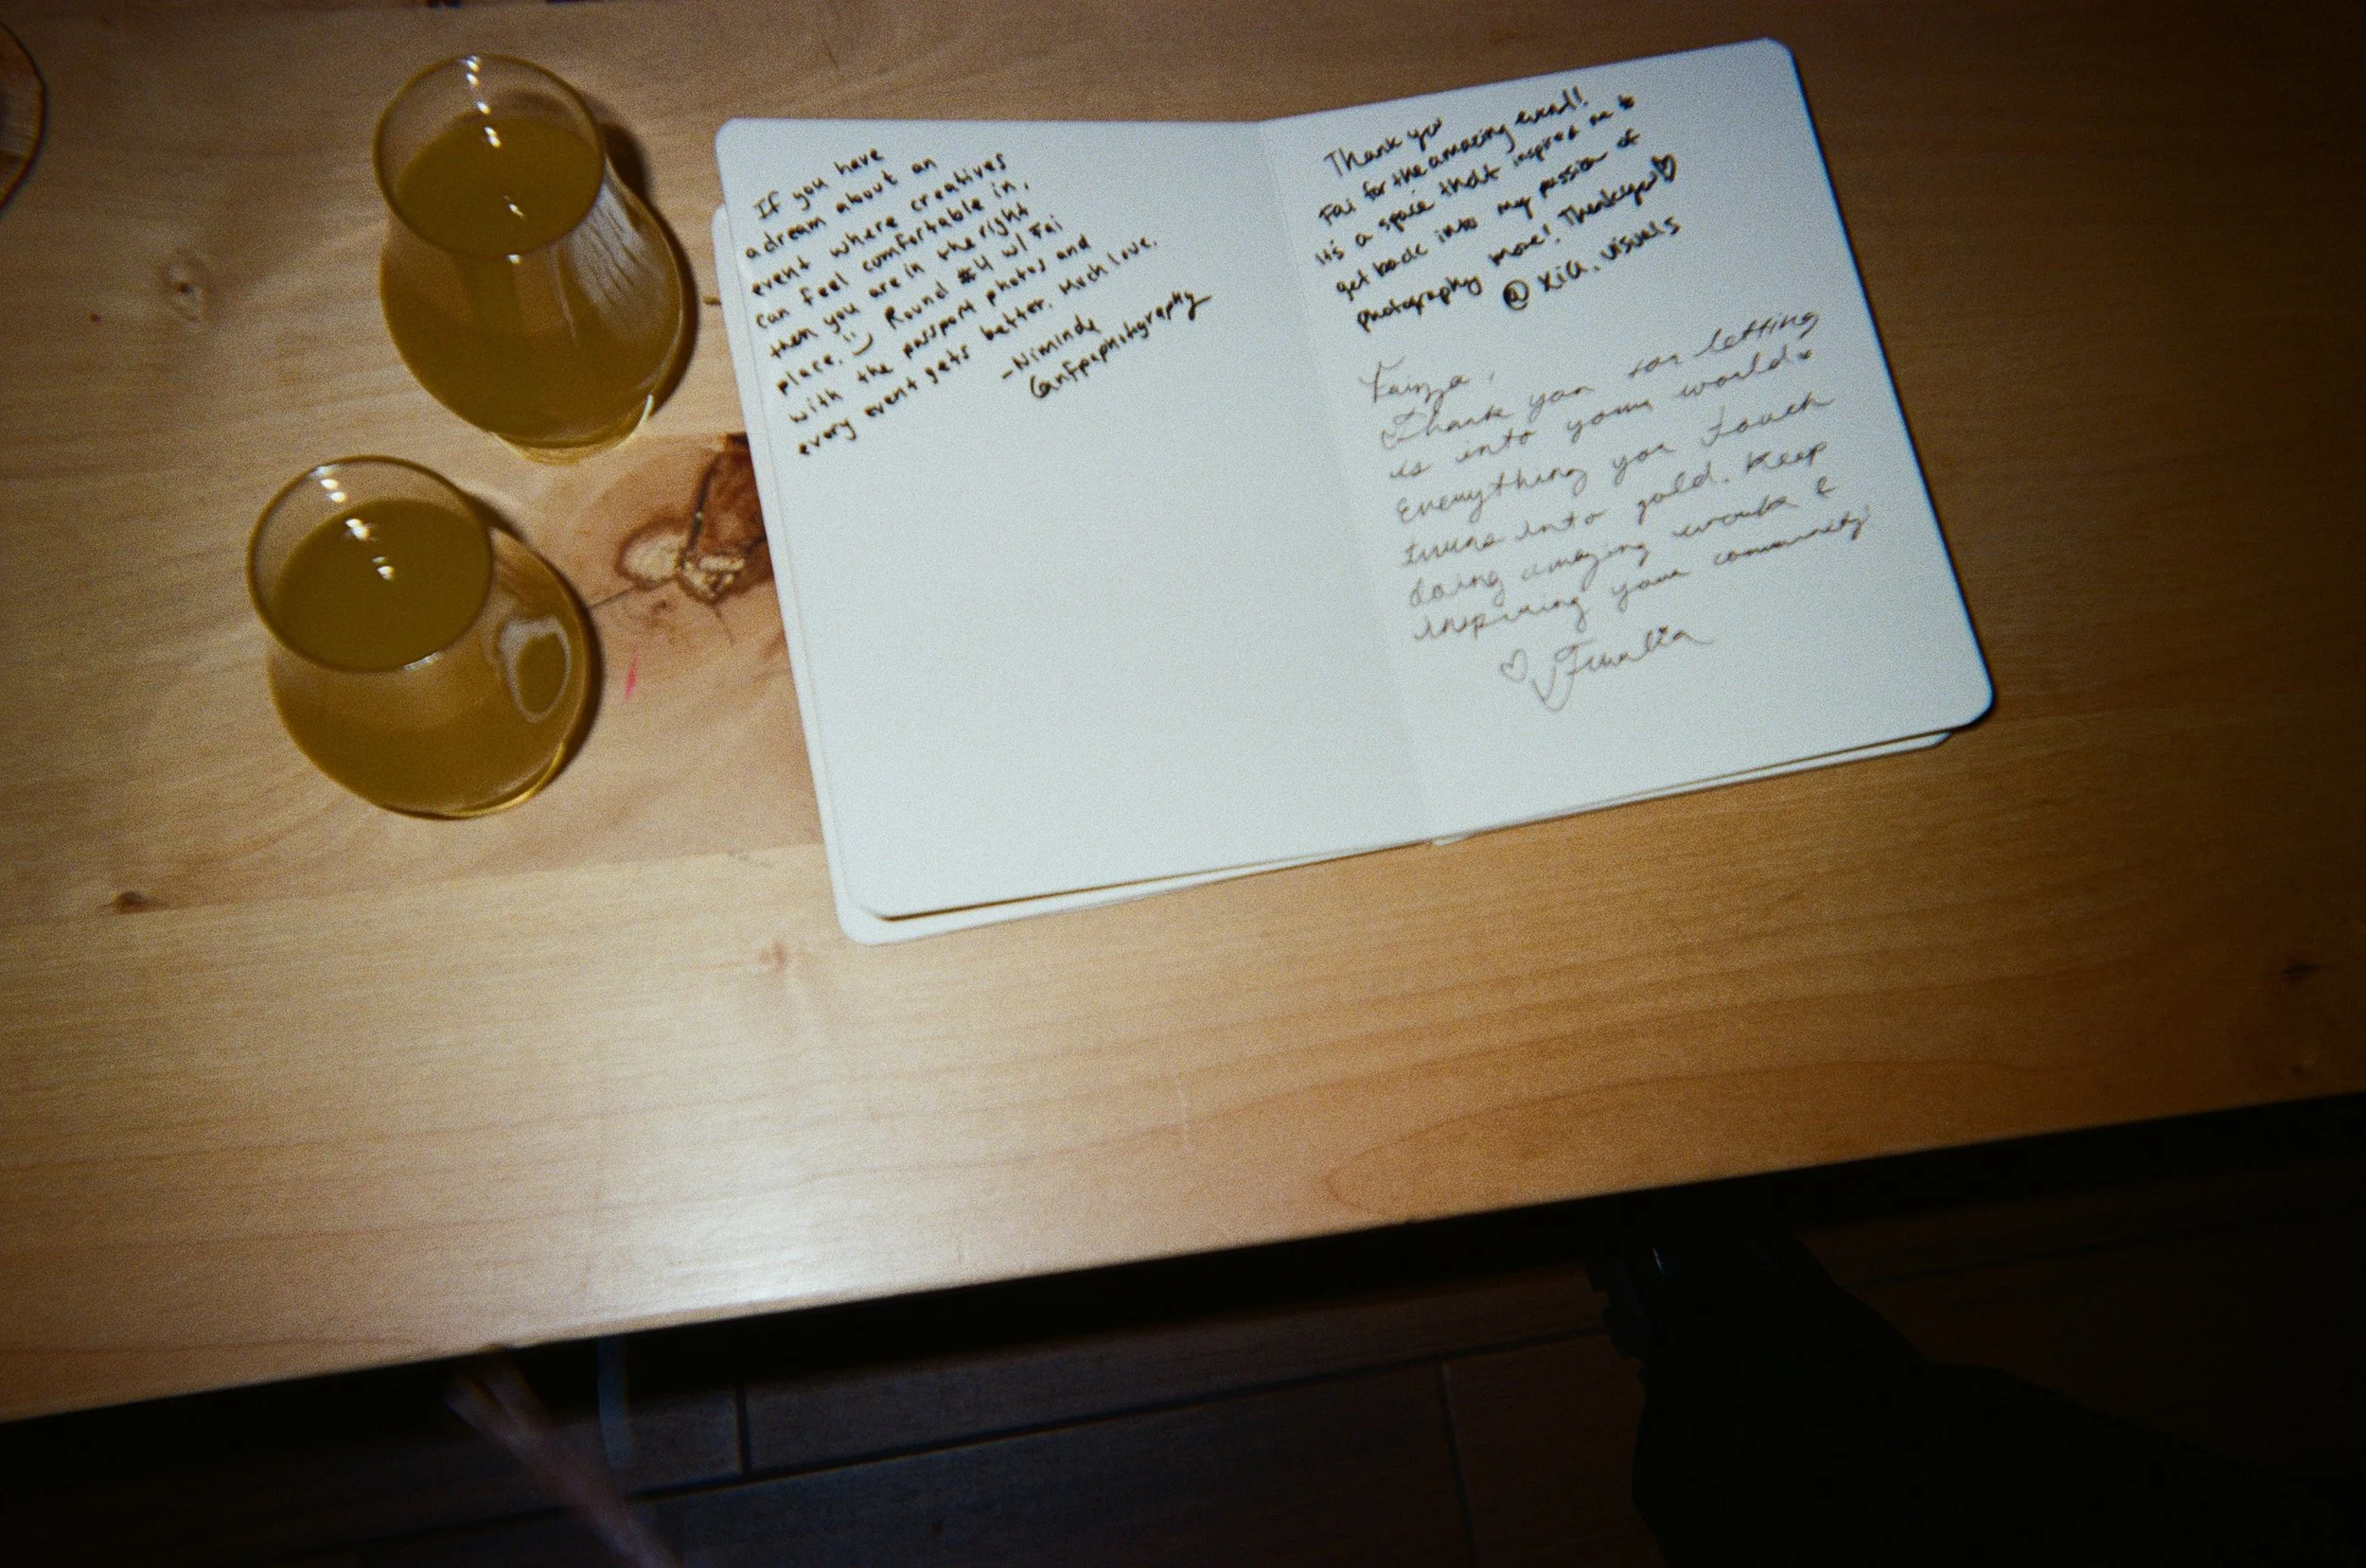 If you have
a dream about an
event where creatives
can feel comfortable in,
then you are in the right
place. :) Round #4 w/ Fai
with the passport photos and
every event gets better. Much love.
-Niminda
@nfpxphotography
Thank you
Fai for the amazing event!
It's a space that inspires me to
get back into my passion of
photography more! Thankyou! ♡
@ XiG. visuals
Faiza,
Thank you for letting
us into your world.
Everything you touch
turns into gold. Keep
doing amazing work &
inspiring your community
♡